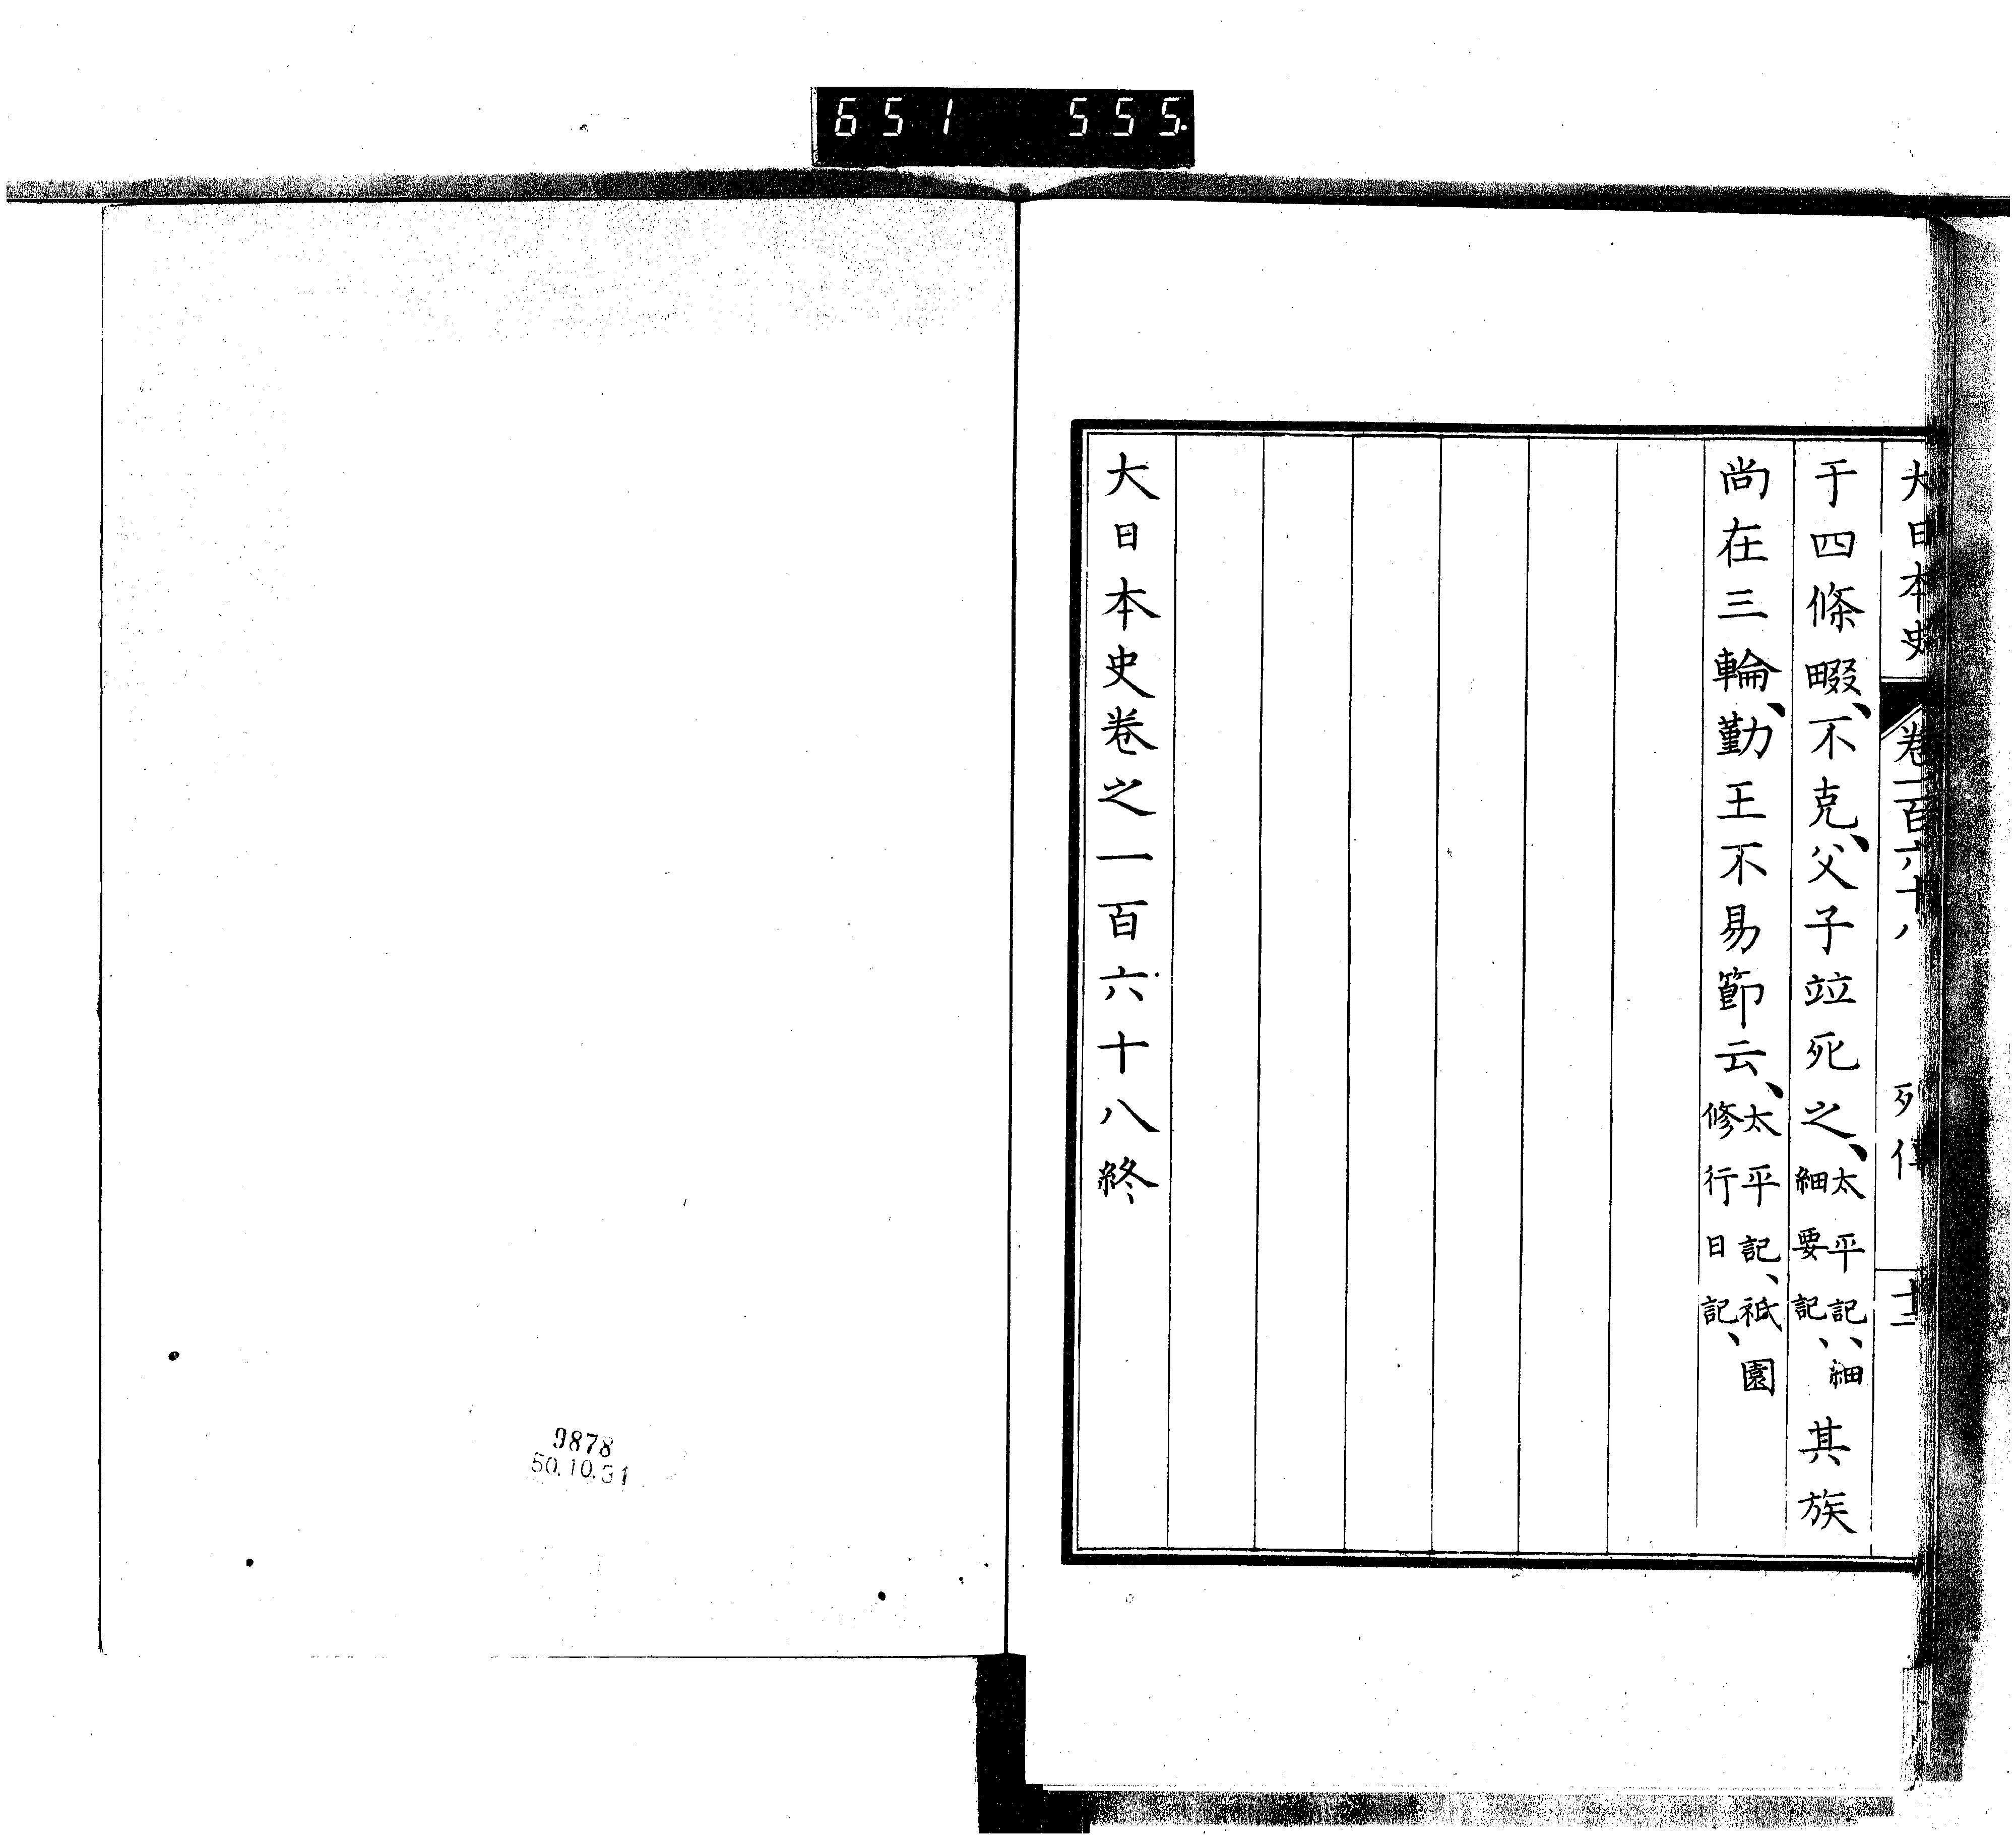 651 555.
大日本史 卷一百六十八 列傳 十二
于四條畷、不克、父子竝死之、太平記、細細要記、其族
尚在三輪、勤王不易節云、太平記、祇園修行日記、
大日本史卷之一百六十八終
9878
50.10.31